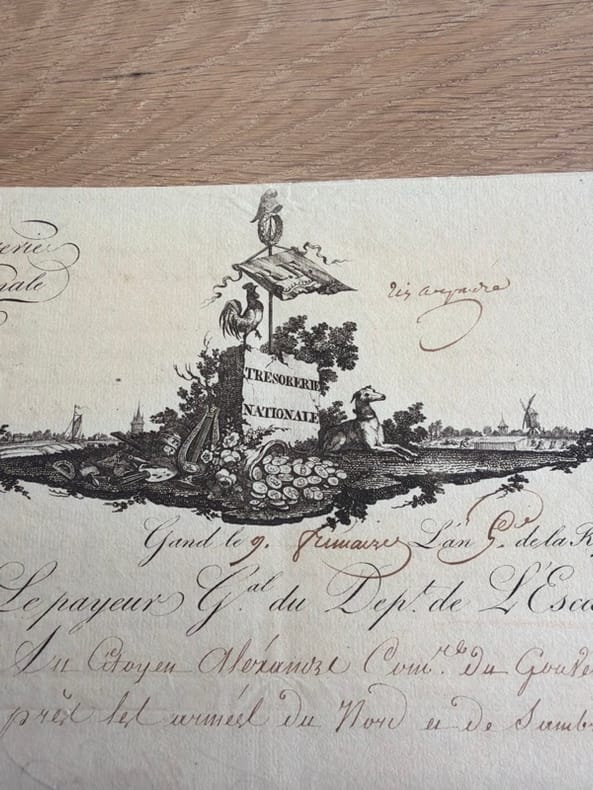 TRESORERIE
NATIONALE
Gand le 9. frimaire L'an 5.e de la R
Le payeur G.al du Dep.t de L'Esca
Au Citoyen Alexandre Com.re du Gouve
près les armées du Nord et de Sambr